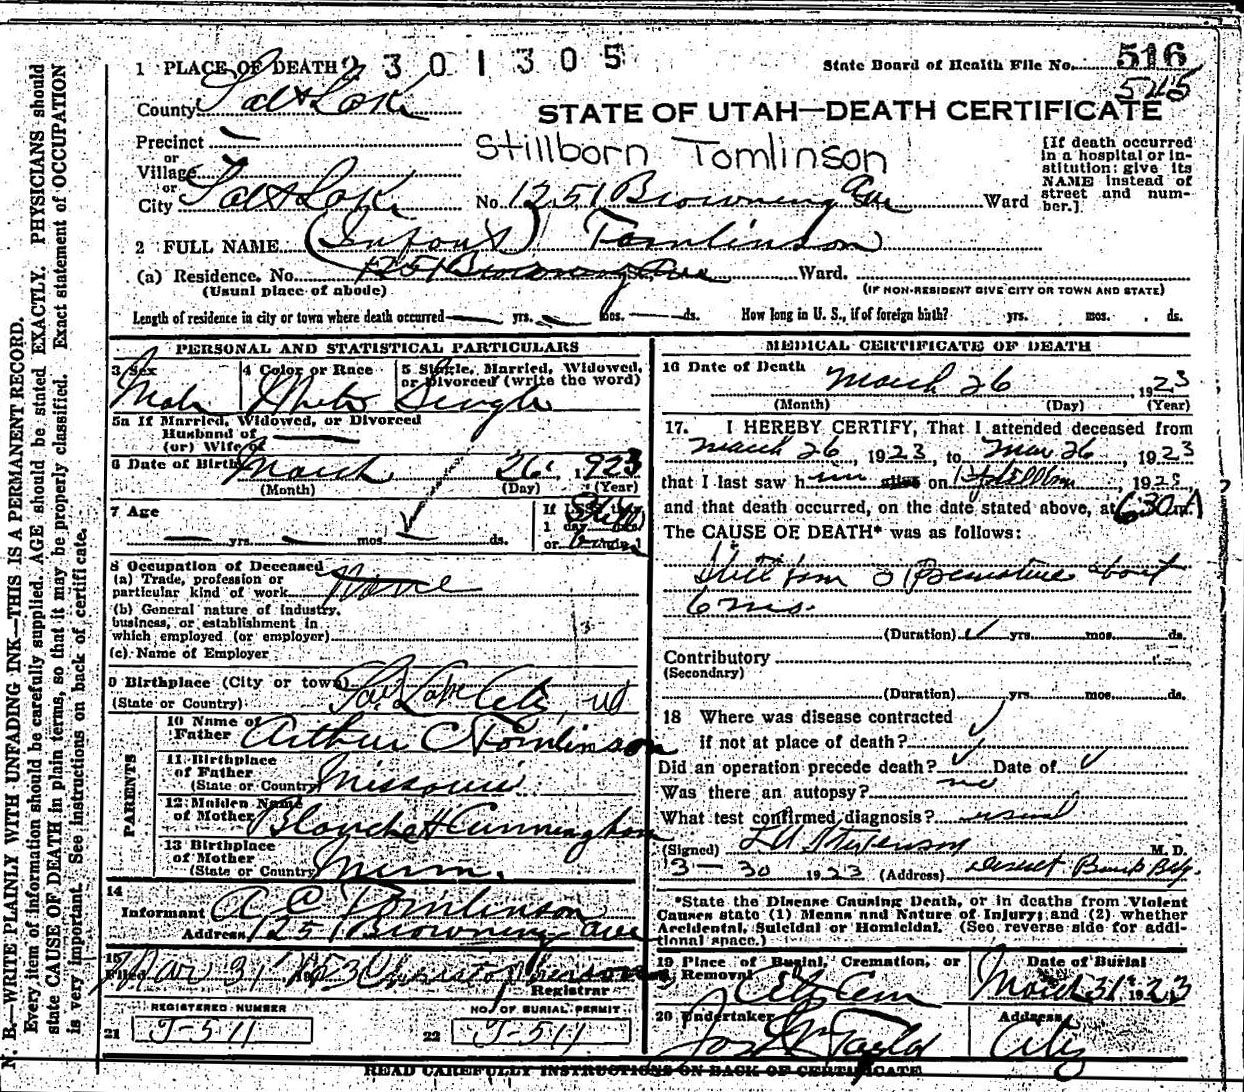 1 PLACE OF DEATH 2301305
State Board of Health File No. 516
545
County Salt Lake
STATE OF UTAH—DEATH CERTIFICATE
Precinct
or
Village
or
City Salt Lake
Stillborn Tomlinson
No. 1251 Browning Ave Ward
[If death occurred
in a hospital or in-
stitution: give its
NAME instead of
street and num-
ber.]
2 FULL NAME (Infant) Tomlinson
(a) Residence. No. 1251 Browning Ave Ward.
(Usual place of abode)
(IF NON-RESIDENT GIVE CITY OR TOWN AND STATE)
Length of residence in city or town where death occurred yrs. mos. ds. How long in U. S., if of foreign birth? yrs. mos. ds.
PERSONAL AND STATISTICAL PARTICULARS
3 Sex
4 Color or Race
5 Single, Married, Widowed,
or Divorced (write the word)
Male White Single
5a If Married, Widowed, or Divorced
Husband of
(or) Wife of
6 Date of Birth March 26, 1923
(Month) (Day) (Year)
7 Age
yrs. mos. ds.
If LESS than
1 day hrs.
or min.
Still
born
8 Occupation of Deceased
(a) Trade, profession or
particular kind of work None
(b) General nature of industry,
business, or establishment in
which employed (or employer)
(c) Name of Employer
9 Birthplace (City or town)
(State or Country) Salt Lake City, Ut
PARENTS
10 Name of
Father Arthur C Tomlinson
11 Birthplace
of Father
(State or Country) Missouri
12 Maiden Name
of Mother Blanche H Cunningham
13 Birthplace
of Mother
(State or Country) Minn.
14
Informant A C Tomlinson
Address 1251 Browning Ave
15
Filed Mar 31 1923
Registrar
REGISTERED NUMBER
21 J-511
NO. OF BURIAL PERMIT
22 J-511
MEDICAL CERTIFICATE OF DEATH
16 Date of Death March 26 1923
(Month) (Day) (Year)
17. I HEREBY CERTIFY, That I attended deceased from
March 26, 1923, to Mar 26, 1923
that I last saw him alive on Stillborn, 1923,
and that death occurred, on the date stated above, at 6:30 A m.
The CAUSE OF DEATH* was as follows:
Still born Premature about
6 mos.
(Duration) yrs. mos. ds.
Contributory
(Secondary)
(Duration) yrs. mos. ds.
18 Where was disease contracted
if not at place of death?
Did an operation precede death? Date of
Was there an autopsy? no
What test confirmed diagnosis? usual
(Signed) Stevenson M. D.
3-30 1923 (Address) Deseret Bank Bldg.
*State the Disease Causing Death, or in deaths from Violent
Causes state (1) Means and Nature of Injury; and (2) whether
Accidental, Suicidal or Homicidal. (See reverse side for addi-
tional space.)
19 Place of Burial, Cremation, or
Removal City Cem
Date of Burial
March 31 1923
20 Undertaker
Jos Wm Taylor
Address
City
READ CAREFULLY INSTRUCTIONS ON BACK OF CERTIFICATE
N. B.—WRITE PLAINLY WITH UNFADING INK—THIS IS A PERMANENT RECORD.
Every item of information should be carefully supplied. AGE should be stated EXACTLY. PHYSICIANS should
state CAUSE OF DEATH in plain terms, so that it may be properly classified. Exact statement of OCCUPATION
is very important. See instructions on back of certificate.